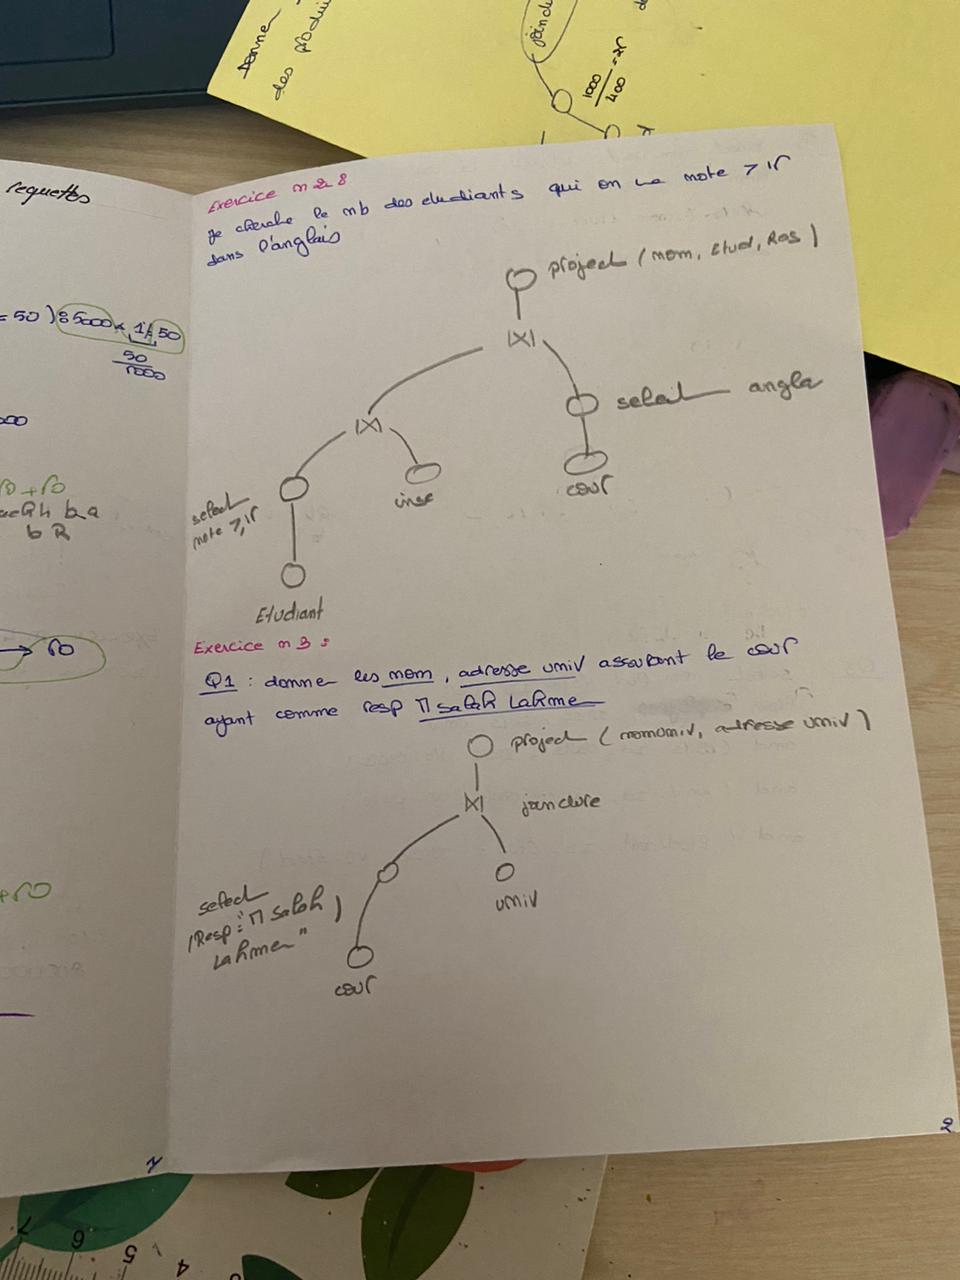 Donne
des produi
joindu
1000
400
requettes
= 50 ) : 5000 * 1/50
50
1000
Exercice n 2 :
Je cherche le nb des etudiants qui on la note > 15
dans l'anglais
project ( nom, Etud, Res )
|X|
select angla
cour
|X|
insc
select
note >, 15
Etudiant
Exercice n 3 :
Q1 : donne les nom, adresse univ assurant le cour
ayant comme resp M Salah Lahme
project ( nomuniv, adresse univ )
|X| joincture
select
(Resp = "M Salah )
Lahmer "
univ
cour
1
2
7 6 5 4